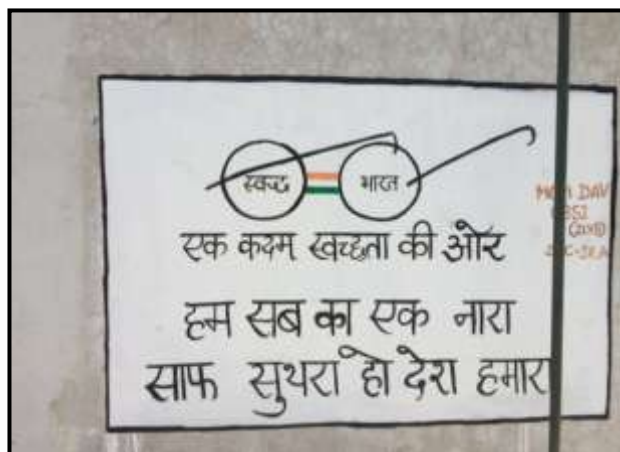 स्वच्छ भारत
एक कदम स्वच्छता की ओर
हम सब का एक नारा
साफ सुथरा हो देश हमारा
DAV